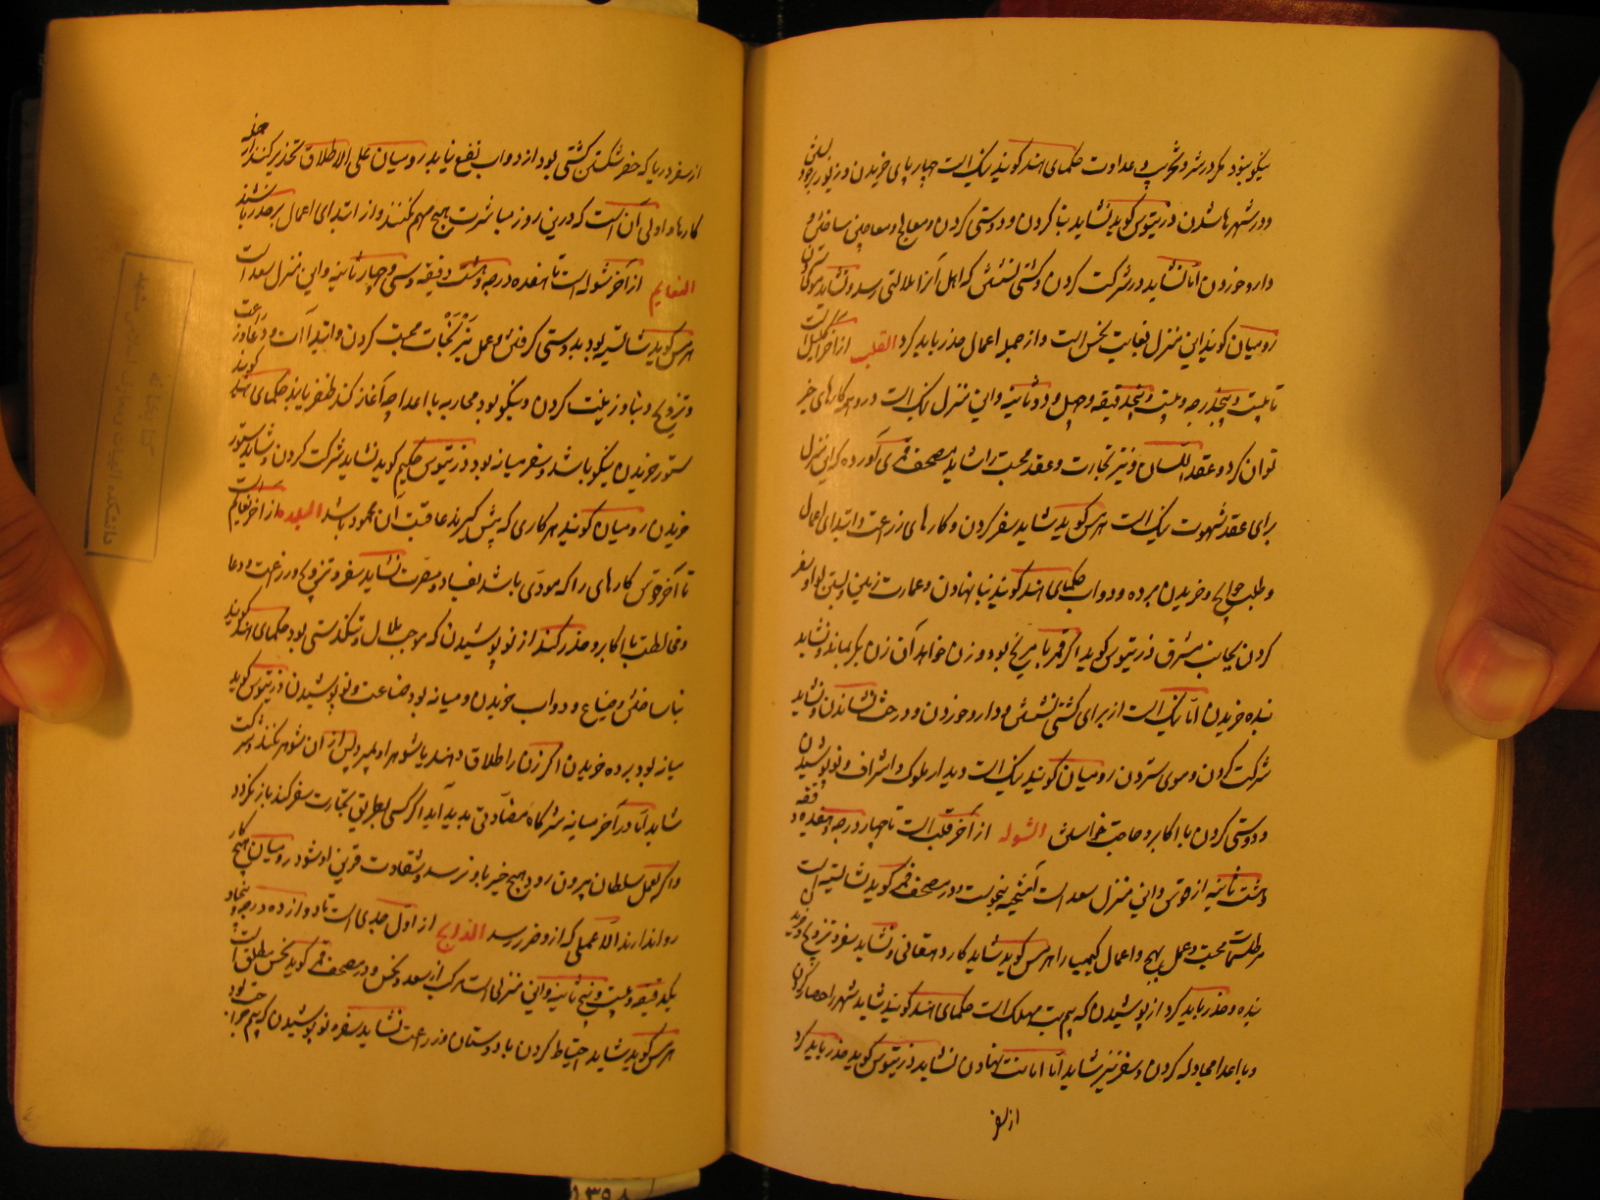 نیکو بود مگر در شر و تخریب و عداوت حکمای هند گویند نیک است چهارپای خریدن و زیور
و در شهرها شدن ذریتوس گوید نشاید بنا کردن و دوستی کردن و معالجه و معاجین ساختن و
دارو خوردن اما نشاید در شرکت کردن و کشتی نشستن که اهل آنرا ملالتی رسد و نشاید
رومیان گویند این منزل بغایت نحس است و از جمله اعمال حذر باید کرد القلب از آخر اکلیل است
تا بیست و پنج درجه و بیست و پنج دقیقه و چهل و دو ثانیه و این منزل نیک است درو هر کارهای خیر
توان کرد و عقد اللسان و نیز تجارت و عقد محبت را شاید مصحف قمری آورده که این منزل
برای عقد شهوت نیک است هرمس گوید شاید سفر کردن و کارهای زرعت و ابتدای اعمال
و طلب حوایج و خریدن برده و دواب حکمای هند گویند بنا نهادن و عمارت زمین و بستن لوا و سفر
کردن بجانب مشرق ذریتوس گوید اگر قمر با مریخ بود و زن خواهد آن زن بکر نماند و نشاید
بنده خریدن اما نیک است از برای کشتی نشستن و دارو خوردن و درخت نشاندن و نشاید
شرکت کردن و موی ستردن رومیان گویند نیک است دیدار ملوک و اشراف و نو پوشیدن
و دوستی کردن با اکابر و حاجت خواستن الشوله از آخر قلب است تا چهار درجه و هفده دقیقه
و هشت ثانیه از قوس و این منزل سعد است آمیخته بنحوست و در مصحف قمر گوید شایسته است
مر طلسمات محبت و عمل بهیج و اعمال کیمیا را هرمس گوید شاید کار دهقانی و نشاید سفر و تزویج و خرید
بنده و حذر باید کرد از نو پوشیدن که بیم تب مهلک است حکمای هند گویند شاید شهر را حصار کردن
و با اعدا مجادله کردن و سفر نیز شاید اما امانت نهادن نشاید ذریتوس گوید حذر باید کرد
از سفر
از سفر دریا که خطر شکستن کشتی بود از دواب نفع نیابد رومیان علی الاطلاق تحذیر کنند از جمله
کارها و اولی آن است که درین روز مباشرت هیچ مهم نکنند و از ابتدای اعمال بر حذر باشند
النعایم از آخر شوله است تا هفده درجه و هشت دقیقه و سی و چهار ثانیه و این منزل سعد است
هرمس گوید شایسته بود بدوستی گرفتن و عمل نیرنجات محبت کردن و ابتدا آن و دعا و زراعت
و تزویج و بنا و زینت کردن و نیکو بود محاربه با اعدا چه آغاز کند ظفر یابد حکمای هند گویند
ستور خریدن نیکو باشد و سفر میانه بود ذریتوس حکیم گوید نشاید شرکت کردن و شاید ستور
خریدن رومیان گویند هر کاری که پیش گیرند عاقبت آن محمود باشد البلده از آخر نعایم است
تا آخر قوس کارهای را که مودی باشد بفساد و مضرت نشاید سفر و تزویج و زرعت و دعا
و مخالطت با اکابر و حذر کنند از نو پوشیدن که موجب ملال و تنگدستی بود حکمای هند گویند
بنا ساختن و ضیاع و دواب خریدن و میانه بود ضاعت و نو پوشیدن ذریتوس گوید
میانه بود برده خریدن اگر زن را طلاق دهند یا شوهر او بمیرد پس از آن شوهر نکند و شرکت
شاید اما در آخر میانه شرکاء مضادتی بدید آید اگر کسی بطریق تجارت سفر کند باز نگردد
و اگر بعمل سلطان بیرون رود هیچ خیر باو نرسد و شقاوت قرین او شود رومیان هیچ کار
روا ندارند الا عملی که ازو ضرر رسد الذابح از اول جدی است تا دوازده درجه و پنجاه
یکدقیقه و بیست و پنج ثانیه و این منزلی است مرکب از سعد و نحس و در مصحف قمر گوید نحس مطلق است
هرمس گوید شاید احتیاط کردن با دوستان و زرعت نشاید سفر و نو پوشیدن که بیم جراحت بود